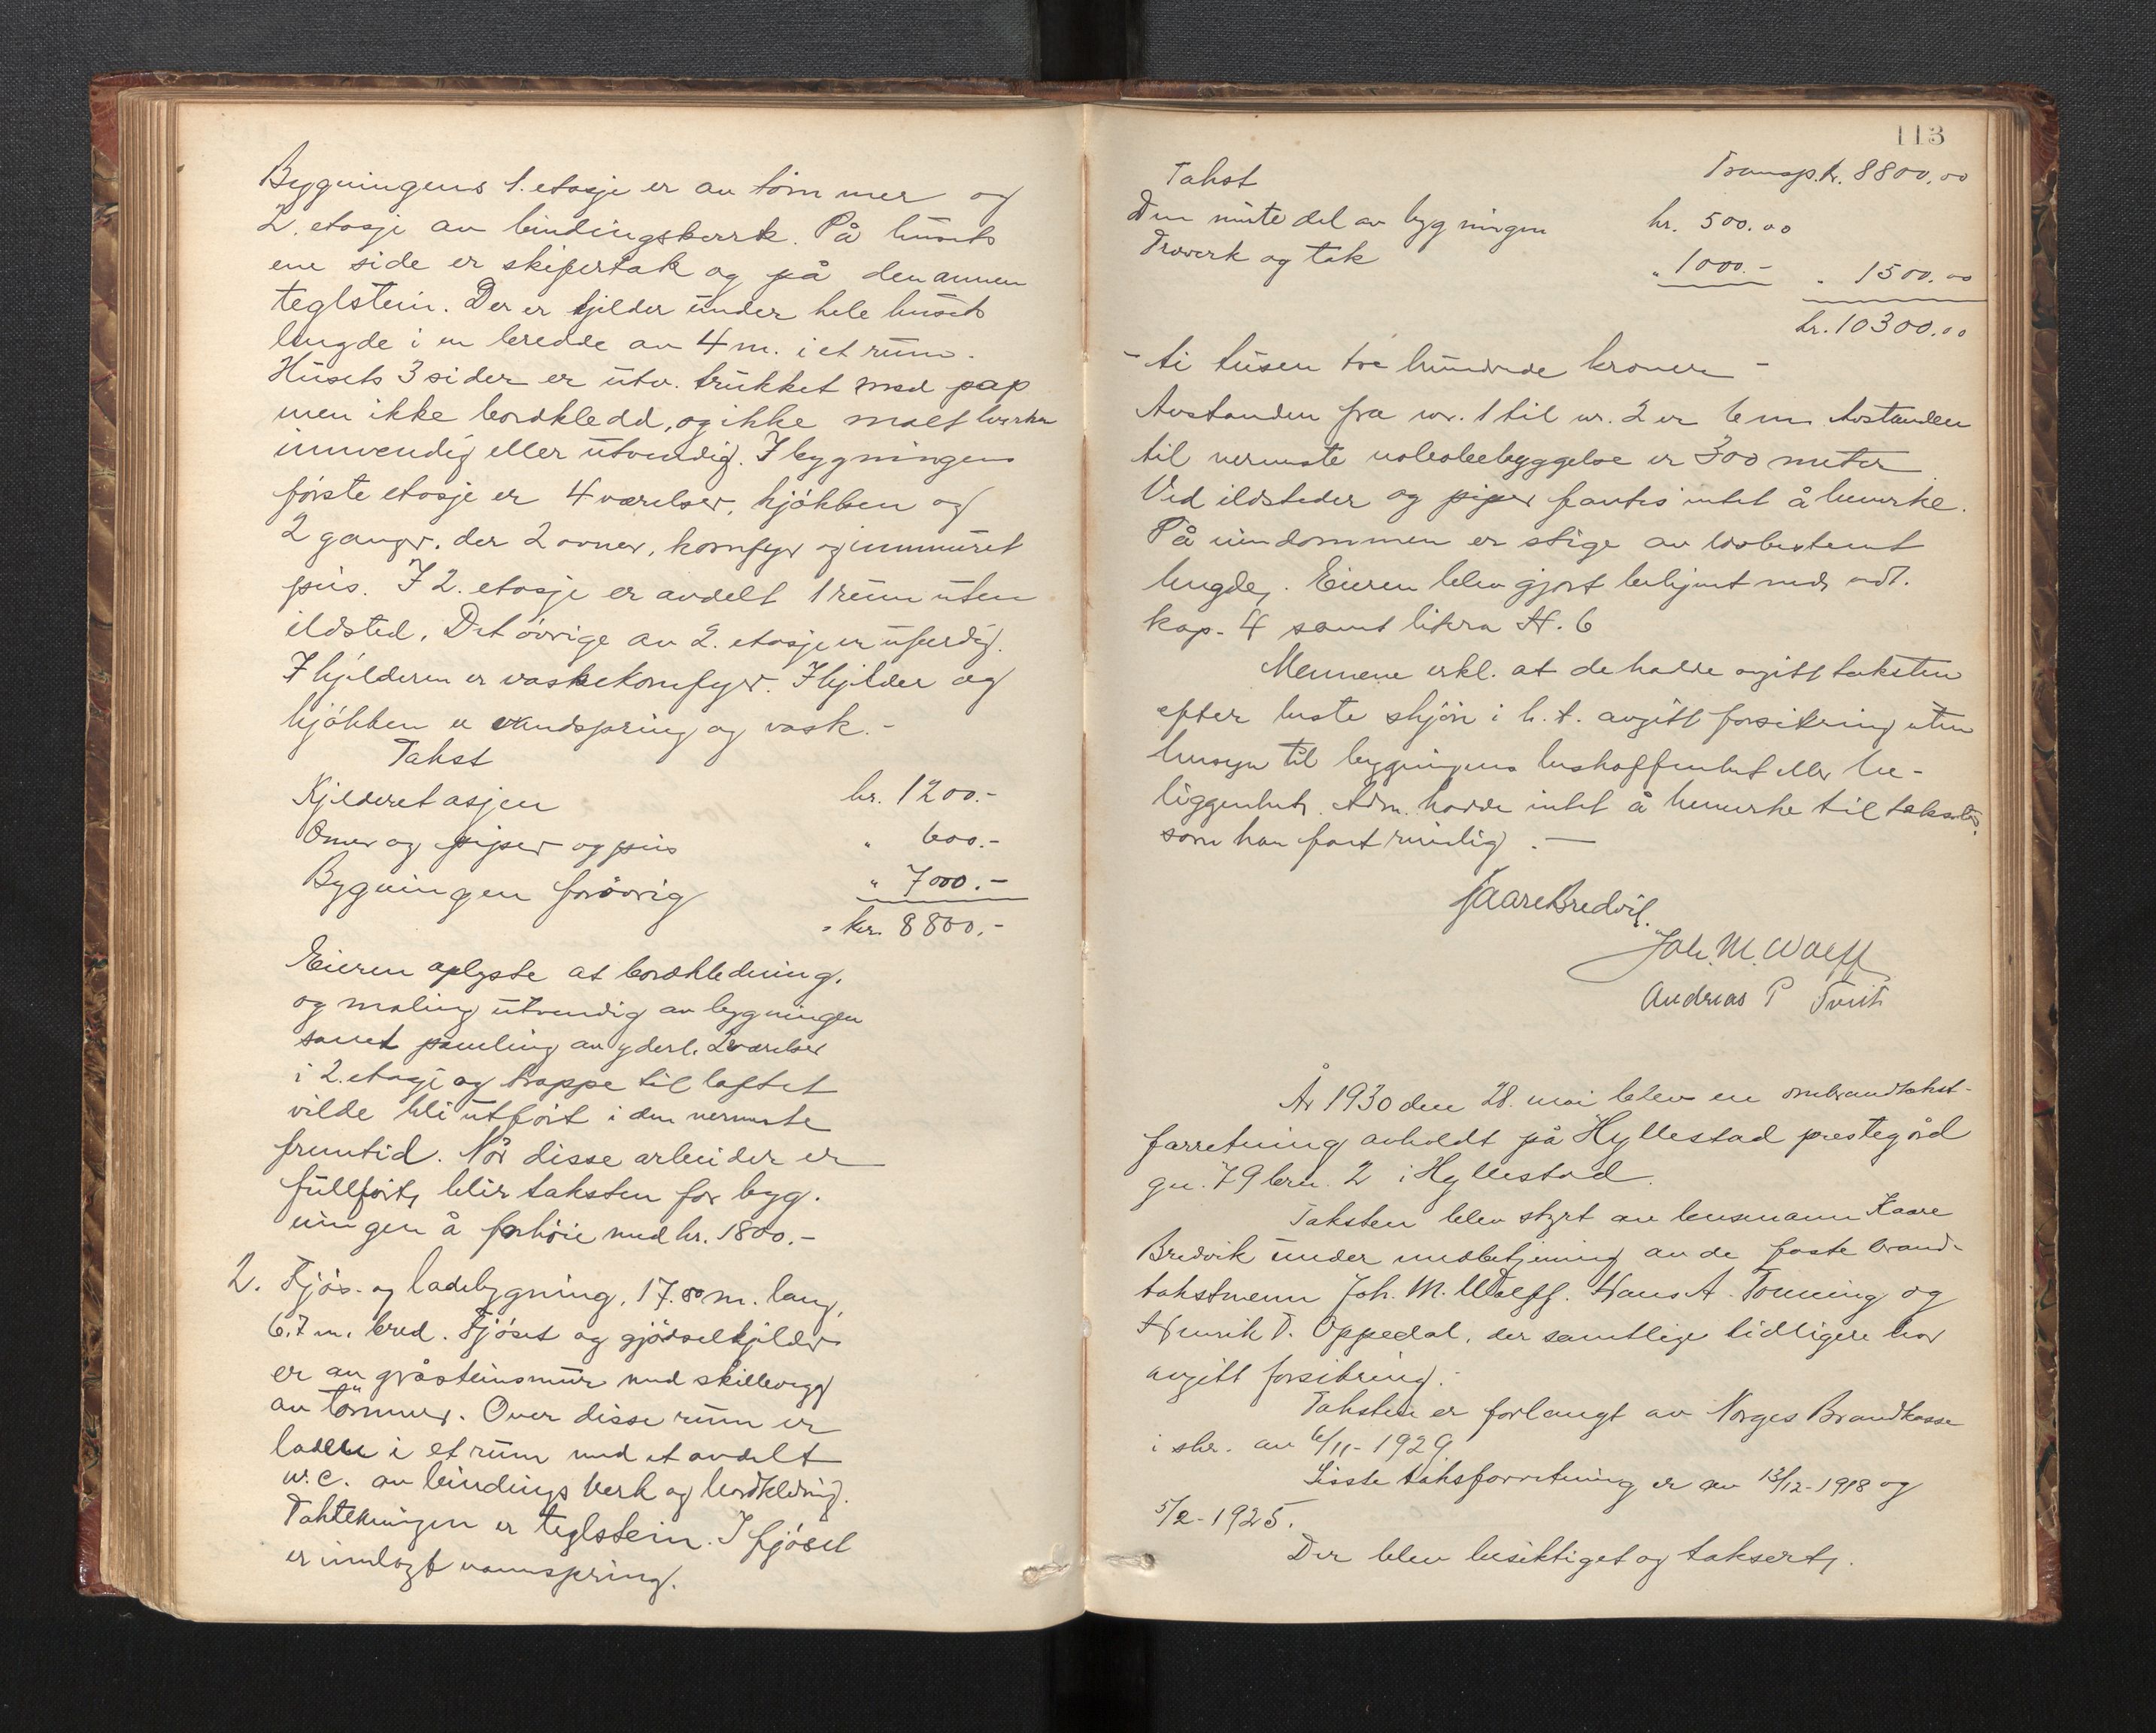 Bygningens 1. etasje er av tömmer og
2. etasje av bindingsverrk. På husets
ene side er skifertak og på den annen
teglstein. Der er kjelder under hele husets
lengde i en bredde av 4 m. i et rum.
Husets 3 sider er utv. trukket med pap
men ikke bordkledd, og ikke malt hverken
innvendig eller utvendig. I bygningens
förste etasje er 4 værelser, kjökken og
2 ganger, der 2 ovner, komfyr og innmuret
peis. I 2. etasje er avdelt 1 rum uten
ildsted. Det övrige av 2. etasje er uferdig.
I kjelderen er vaskekomfyr. I kjelder og
kjökken er vandspring og vask.-
Takst
Kjelderetasjen kr. 1200.-
Ovner og piper og peis " 600.-
Bygningen forövrig " 7000.-
= kr. 8800.-
Eieren oplyste at bordkledning,
og maling utvendig av bygningen
samt paneling av yderl. 2 værelser
i 2. etasje og trappe til loftet
vilde bli utfört i den nermeste
fremtid. Når disse arbeider er
fullfört, blir taksten for byg-
ningen å forhöie med kr. 1800.-
2. Fjös- og ladebygning, 17.80 m. lang,
6.7 m. bred. Fjöset og gjödselkjelder
er av gråsteinsmur med skillevegg
av tömmer. Over disse rum er
laden i et rum med et avdelt
w.c. av bindingsverk og bordkledning.
Taktekningen er teglstein. I fjöset
er innlagt vannspring.
113
Takst Transp. kr. 8800,00
Den murte del av bygningen kr. 500.00
Treverk og tak " 1000.- " 1500.00
kr. 10300.00
- ti tusen tre hundrede kroner -
Avstanden fra nr. 1 til nr. 2 er 6 m. Avstanden
til nermeste nabobebyggelse er 300 meter
Ved ildsteder og piper fantes intet å bemerke.
På eiendommen er stige av lovbestemt
lengde. Eieren blev gjort bekjent med vedt.
kap. 4 samt litra H. 6
Mennene erkl. at de hadde avgitt taksten
efter beste skjön i h. t. avgitt forsikring uten
hensyn til bygningens beskaffenhet eller be-
liggenhet. Adm. hadde intet å bemerke til taksten,
som han fant rimelig. —
Kaare Bredvik.
Joh. M. Wolff
Andreas P Tveit
År 1930 den 28. mai blev en ombrandtakst-
forretning avholdt på Hyllestad prestegård
gn. 79 brn. 2 i Hyllestad.
Taksten blev styrt av lensmann Kaare
Bredvik under medbetjening av de faste brand-
takstmenn Joh. M. Wolff, Hans A. Tonning og
Henrik T. Oppedal, der samtlige tidligere har
avgitt forsikring.-
Taksten er forlangt av Norges Brandkasse
i skr. av 6/11-1929.
Siste takstforretning er av 13/12-1918 og
5/2-1925.
Der blev besiktiget og taksert,.